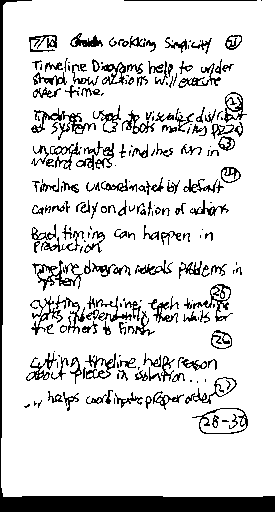 7/10 Grokking Simplicity 21
Timeline Diagrams help to under
stand how actions will execute
over time.
22
Timelines used to visualize distribut
ed system (3 robots making pizza)
uncoordinated timelines run in 23
weird orders.
24
Timelines uncoordinated by default
cannot rely on duration of actions
Bad timing can happen in
production
Timeline diagram reveals problems in
system
25
cutting timeline; each timeline
waits independently then waits for
the others to finish
26
cutting timeline helps reason
about pieces in isolation...
27
... helps coordinate proper order
28-30